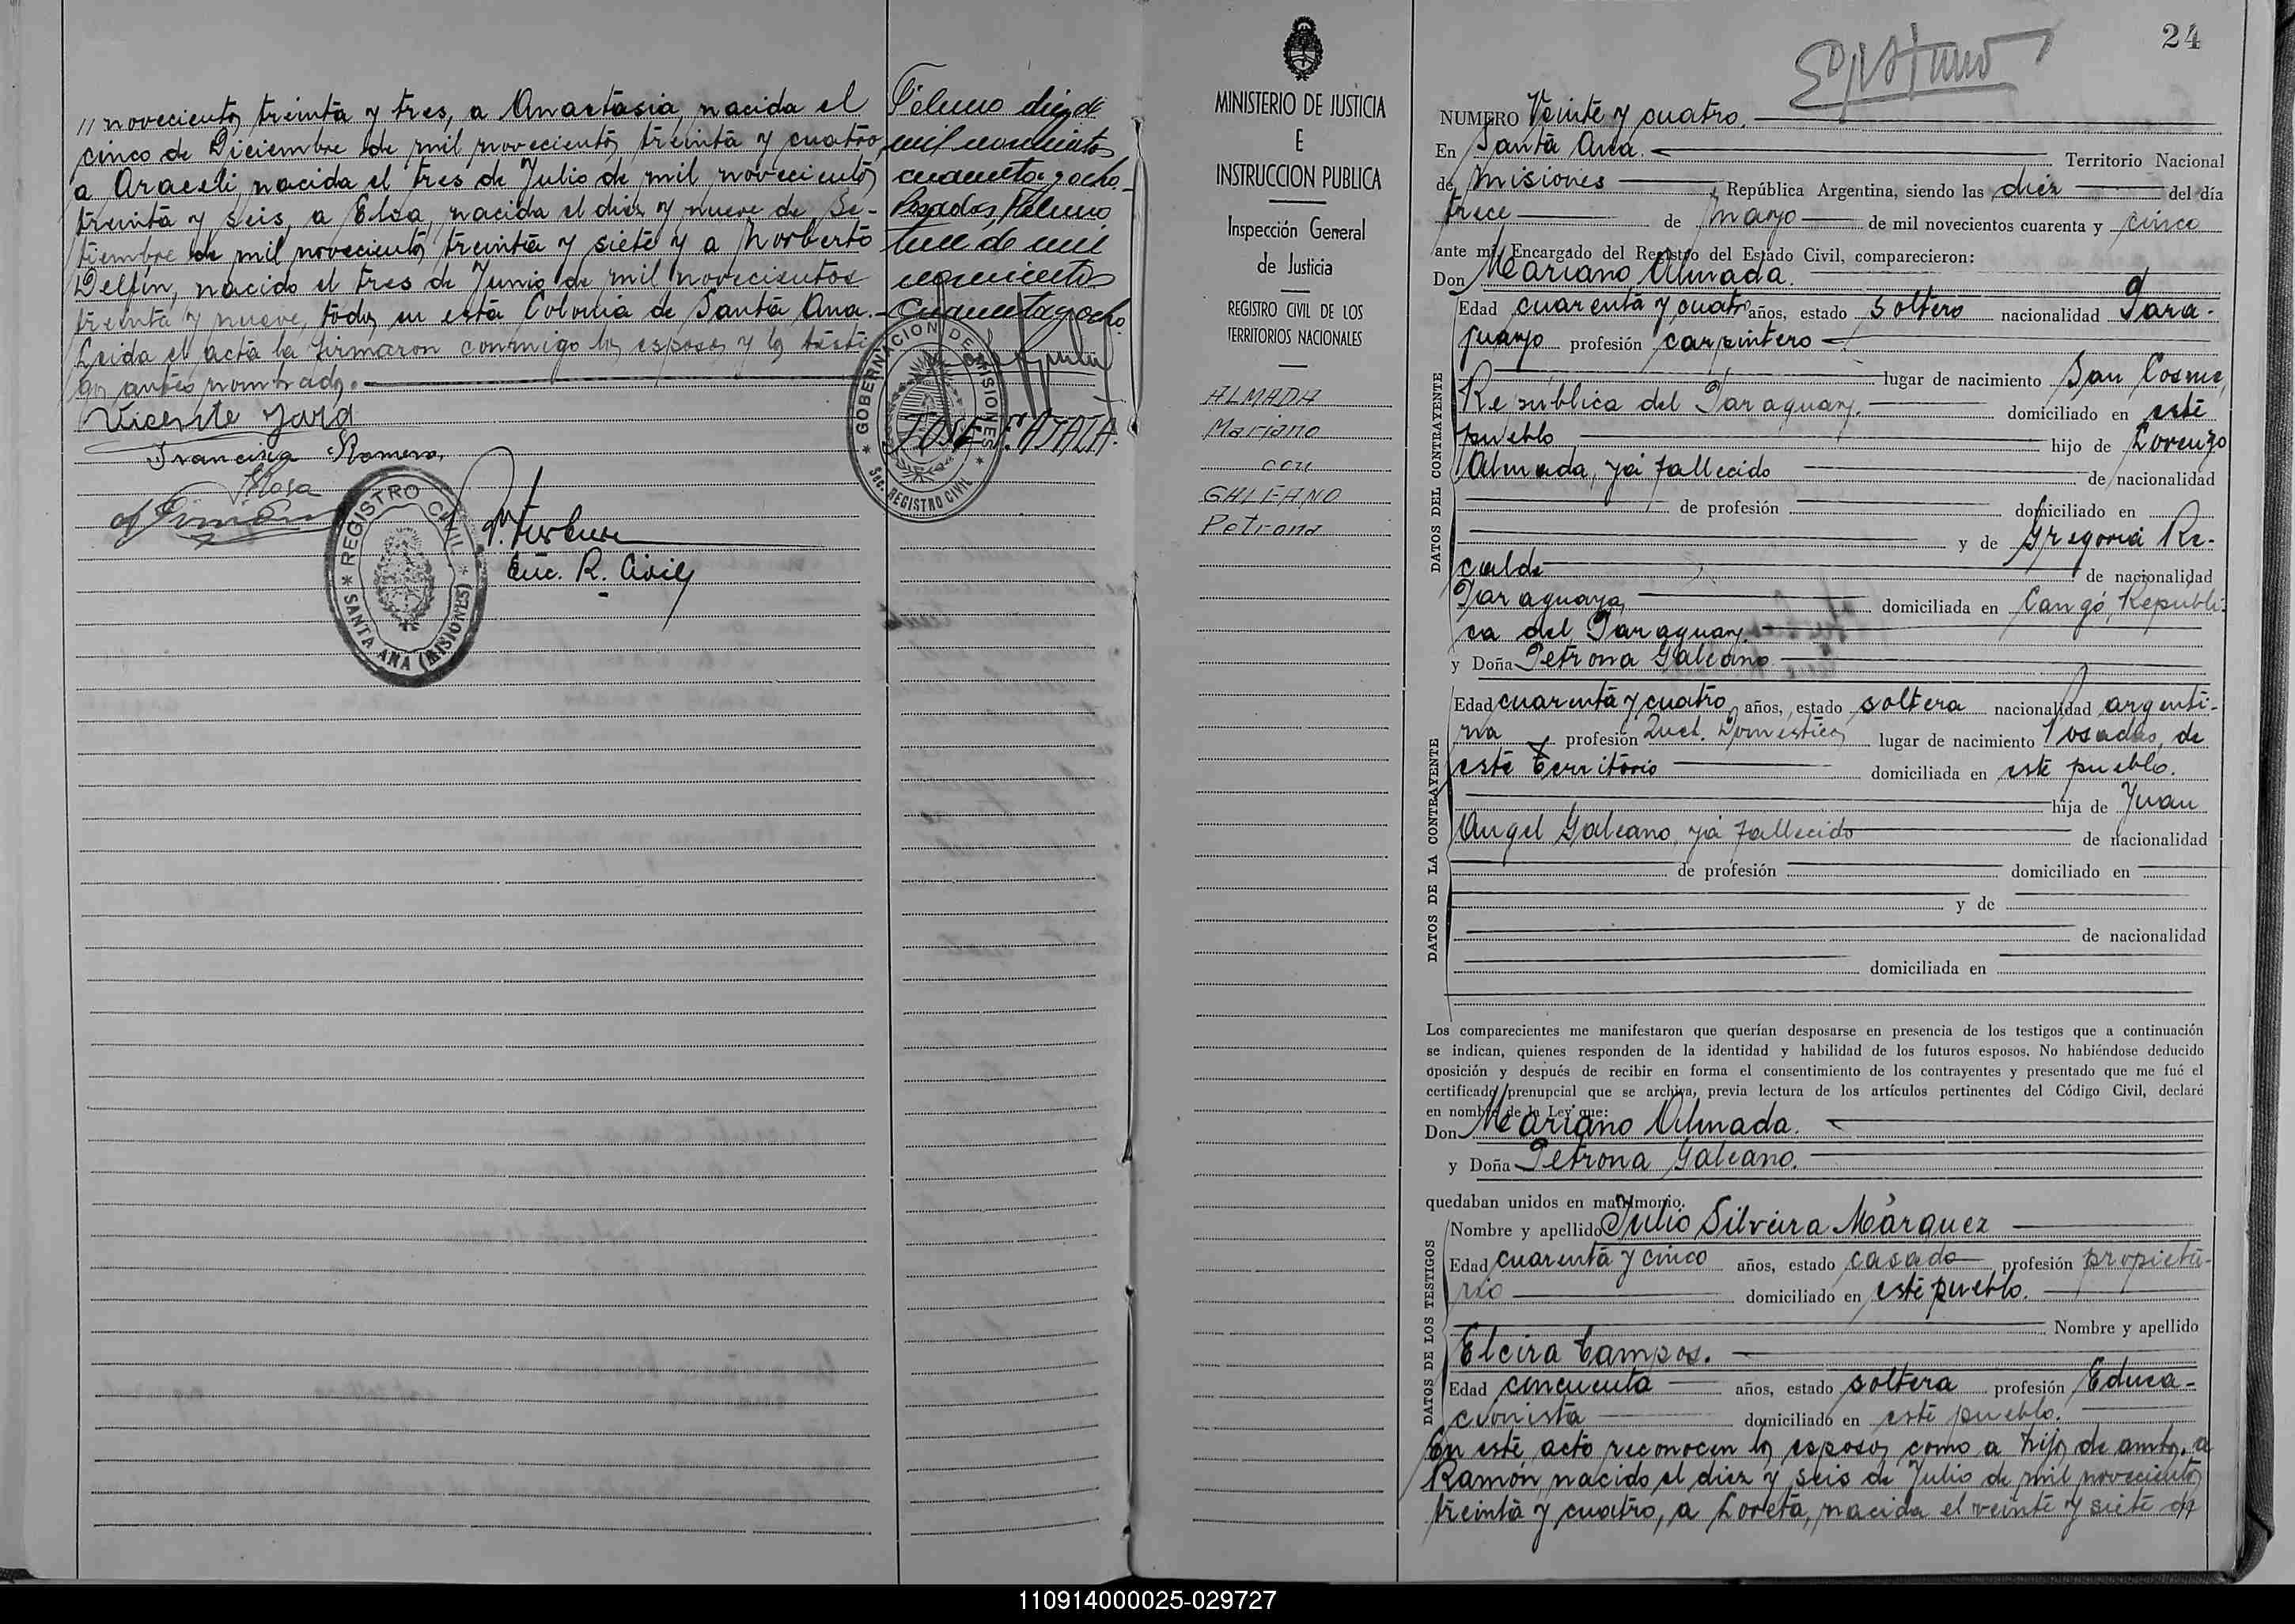 // novecientos treinta y tres, a Anastasia, nacida el
cinco de Diciembre de mil novecientos treinta y cuatro,
a Araceli, nacida el tres de Julio de mil novecientos
treinta y seis, a Elsa, nacida el diez y nueve de Se-
tiembre de mil novecientos treinta y siete y a Norberto
Delfin, nacido el tres de Junio de mil novecientos
treinta y nueve, todos en esta Colonia de Santa Ana.-
Leida el acta la firmaron conmigo los esposos y los testi
gos antes nombrados.
Vicente Jara
Francisca Romero
REGISTRO CIVIL
SANTA ANA (MISIONES)
Enc. R. Civil
Febrero diez de
mil novecientos
cuarenta y ocho.-
Posadas, Febrero
trece de mil
novecientos
cuarenta y ocho.
GOBERNACION DE MISIONES
Sec. REGISTRO CIVIL
MINISTERIO DE JUSTICIA
E
INSTRUCCION PUBLICA
Inspección General
de Justicia
REGISTRO CIVIL DE LOS
TERRITORIOS NACIONALES
ALMADA
Mariano
con
GALEANO
Petrona
24
NUMERO Veinte y cuatro.
En Santa Ana. Territorio Nacional
de Misiones, República Argentina, siendo las diez del día
trece de mayo de mil novecientos cuarenta y cinco
ante mí, Encargado del Registro del Estado Civil, comparecieron:
Don Mariano Almada.
DATOS DEL CONTRAYENTE
Edad cuarenta y cuatro años, estado soltero nacionalidad Para-
guayo profesión carpintero
lugar de nacimiento San Cosme,
República del Paraguay. domiciliado en este
pueblo hijo de Lorenzo
Almada, ya fallecido de nacionalidad
de profesión domiciliado en
y de Gregoria Re-
calde de nacionalidad
Paraguaya, domiciliada en Cangó, Repúbli-
ca del Paraguay.
y Doña Petrona Galeano
DATOS DE LA CONTRAYENTE
Edad cuarenta y cuatro años, estado soltera nacionalidad argenti-
na profesión Quel. Domésticos lugar de nacimiento Posadas, de
este Territorio domiciliada en este pueblo.
hija de Juan
Angel Galeano, ya fallecido de nacionalidad
de profesión domiciliado en
y de
de nacionalidad
domiciliada en
Los comparecientes me manifestaron que querían desposarse en presencia de los testigos que a continuación
se indican, quienes responden de la identidad y habilidad de los futuros esposos. No habiéndose deducido
oposición y después de recibir en forma el consentimiento de los contrayentes y presentado que me fué el
certificado prenupcial que se archiva, previa lectura de los artículos pertinentes del Código Civil, declaré
en nombre de la Ley que:
Don Mariano Almada.
y Doña Petrona Galeano.
quedaban unidos en matrimonio.
DATOS DE LOS TESTIGOS
Nombre y apellido Julio Silveira Márquez
Edad cuarenta y cinco años, estado casado profesión propieta-
rio domiciliado en este pueblo.
Nombre y apellido
Elcira Campos.
Edad cincuenta años, estado soltera profesión Educa-
cionista domiciliado en este pueblo.
En este acto reconocen los esposos como a hijos de ambos, a
Ramón, nacido el diez y seis de Julio de mil novecientos
treinta y cuatro, a Loreta, nacida el veinte y siete de
110914000025-029727